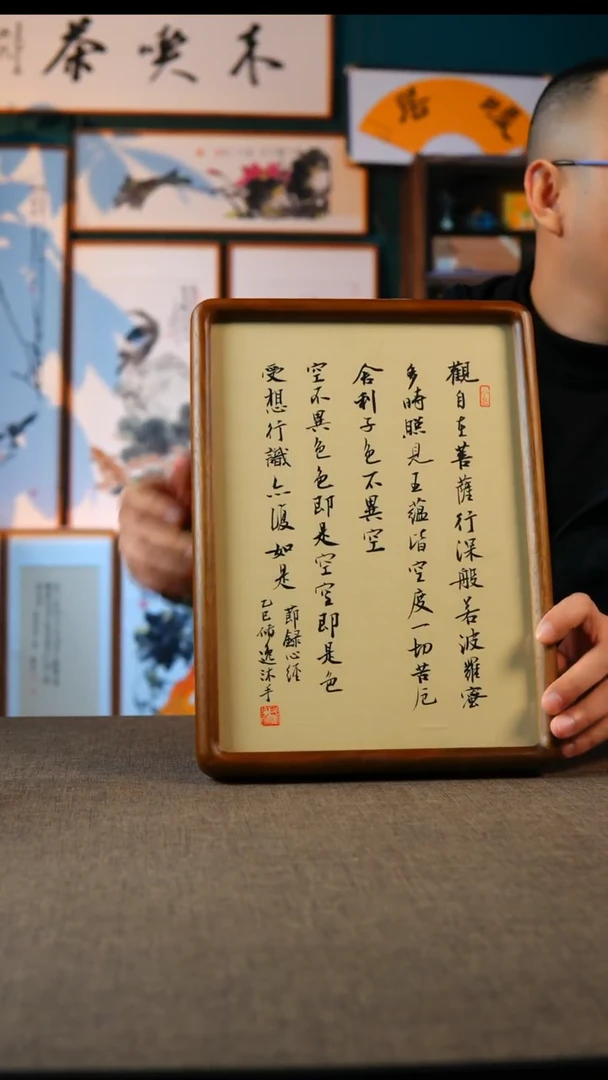 喫茶
觀自在菩薩行深般若波羅蜜
多時照見五蘊皆空度一切苦厄
舍利子色不異空
空不異色色即是空空即是色
受想行識亦復如是
節録心經
乙巳逸沐手